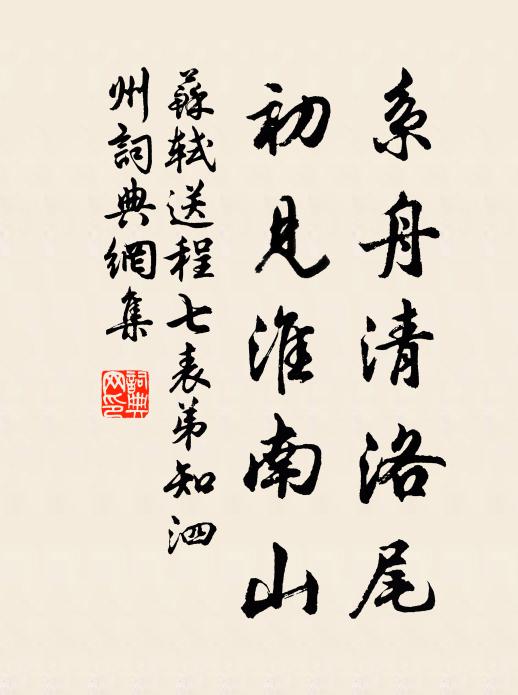 系舟清洛尾
初見淮南山
蘇軾送程七表弟知泗
州詞典網集
詞典
网印